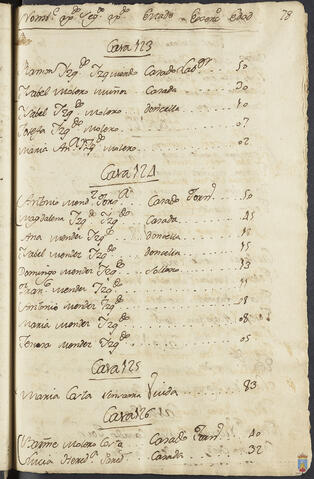 Nomb.s 1.os Seg.os Estado Exerc.o edad 78
Casa 123
Ramon Izq.do Izquierdo Casado Lab.or 50
Ysabel Molero Muñoz Casada 30
Ysabel Izq.do Molero doncella 10
Josefa Izq.do Molero 07
Maria An.a Izq.do Molero 02
Casa 124
Antonio Mend.z Casado Jorn.o 50
Magdalena Izq.do Izq.do Casada 45
Ana Mendez Izq.do doncella 18
Ysabel Mendez Izq.do doncella 15
Domingo Mendez Izq.do Soltero 13
Fran.co Mendez Izq.do 11
Antonio Mendez Izq.do 08
Maria Mendez Izq.do 08
Mendez Izq.do 05
Casa 125
Maria Viuda 83
Casa 126
Molero Casado Jorn.o 40
Lucia Hered.a Casada 32